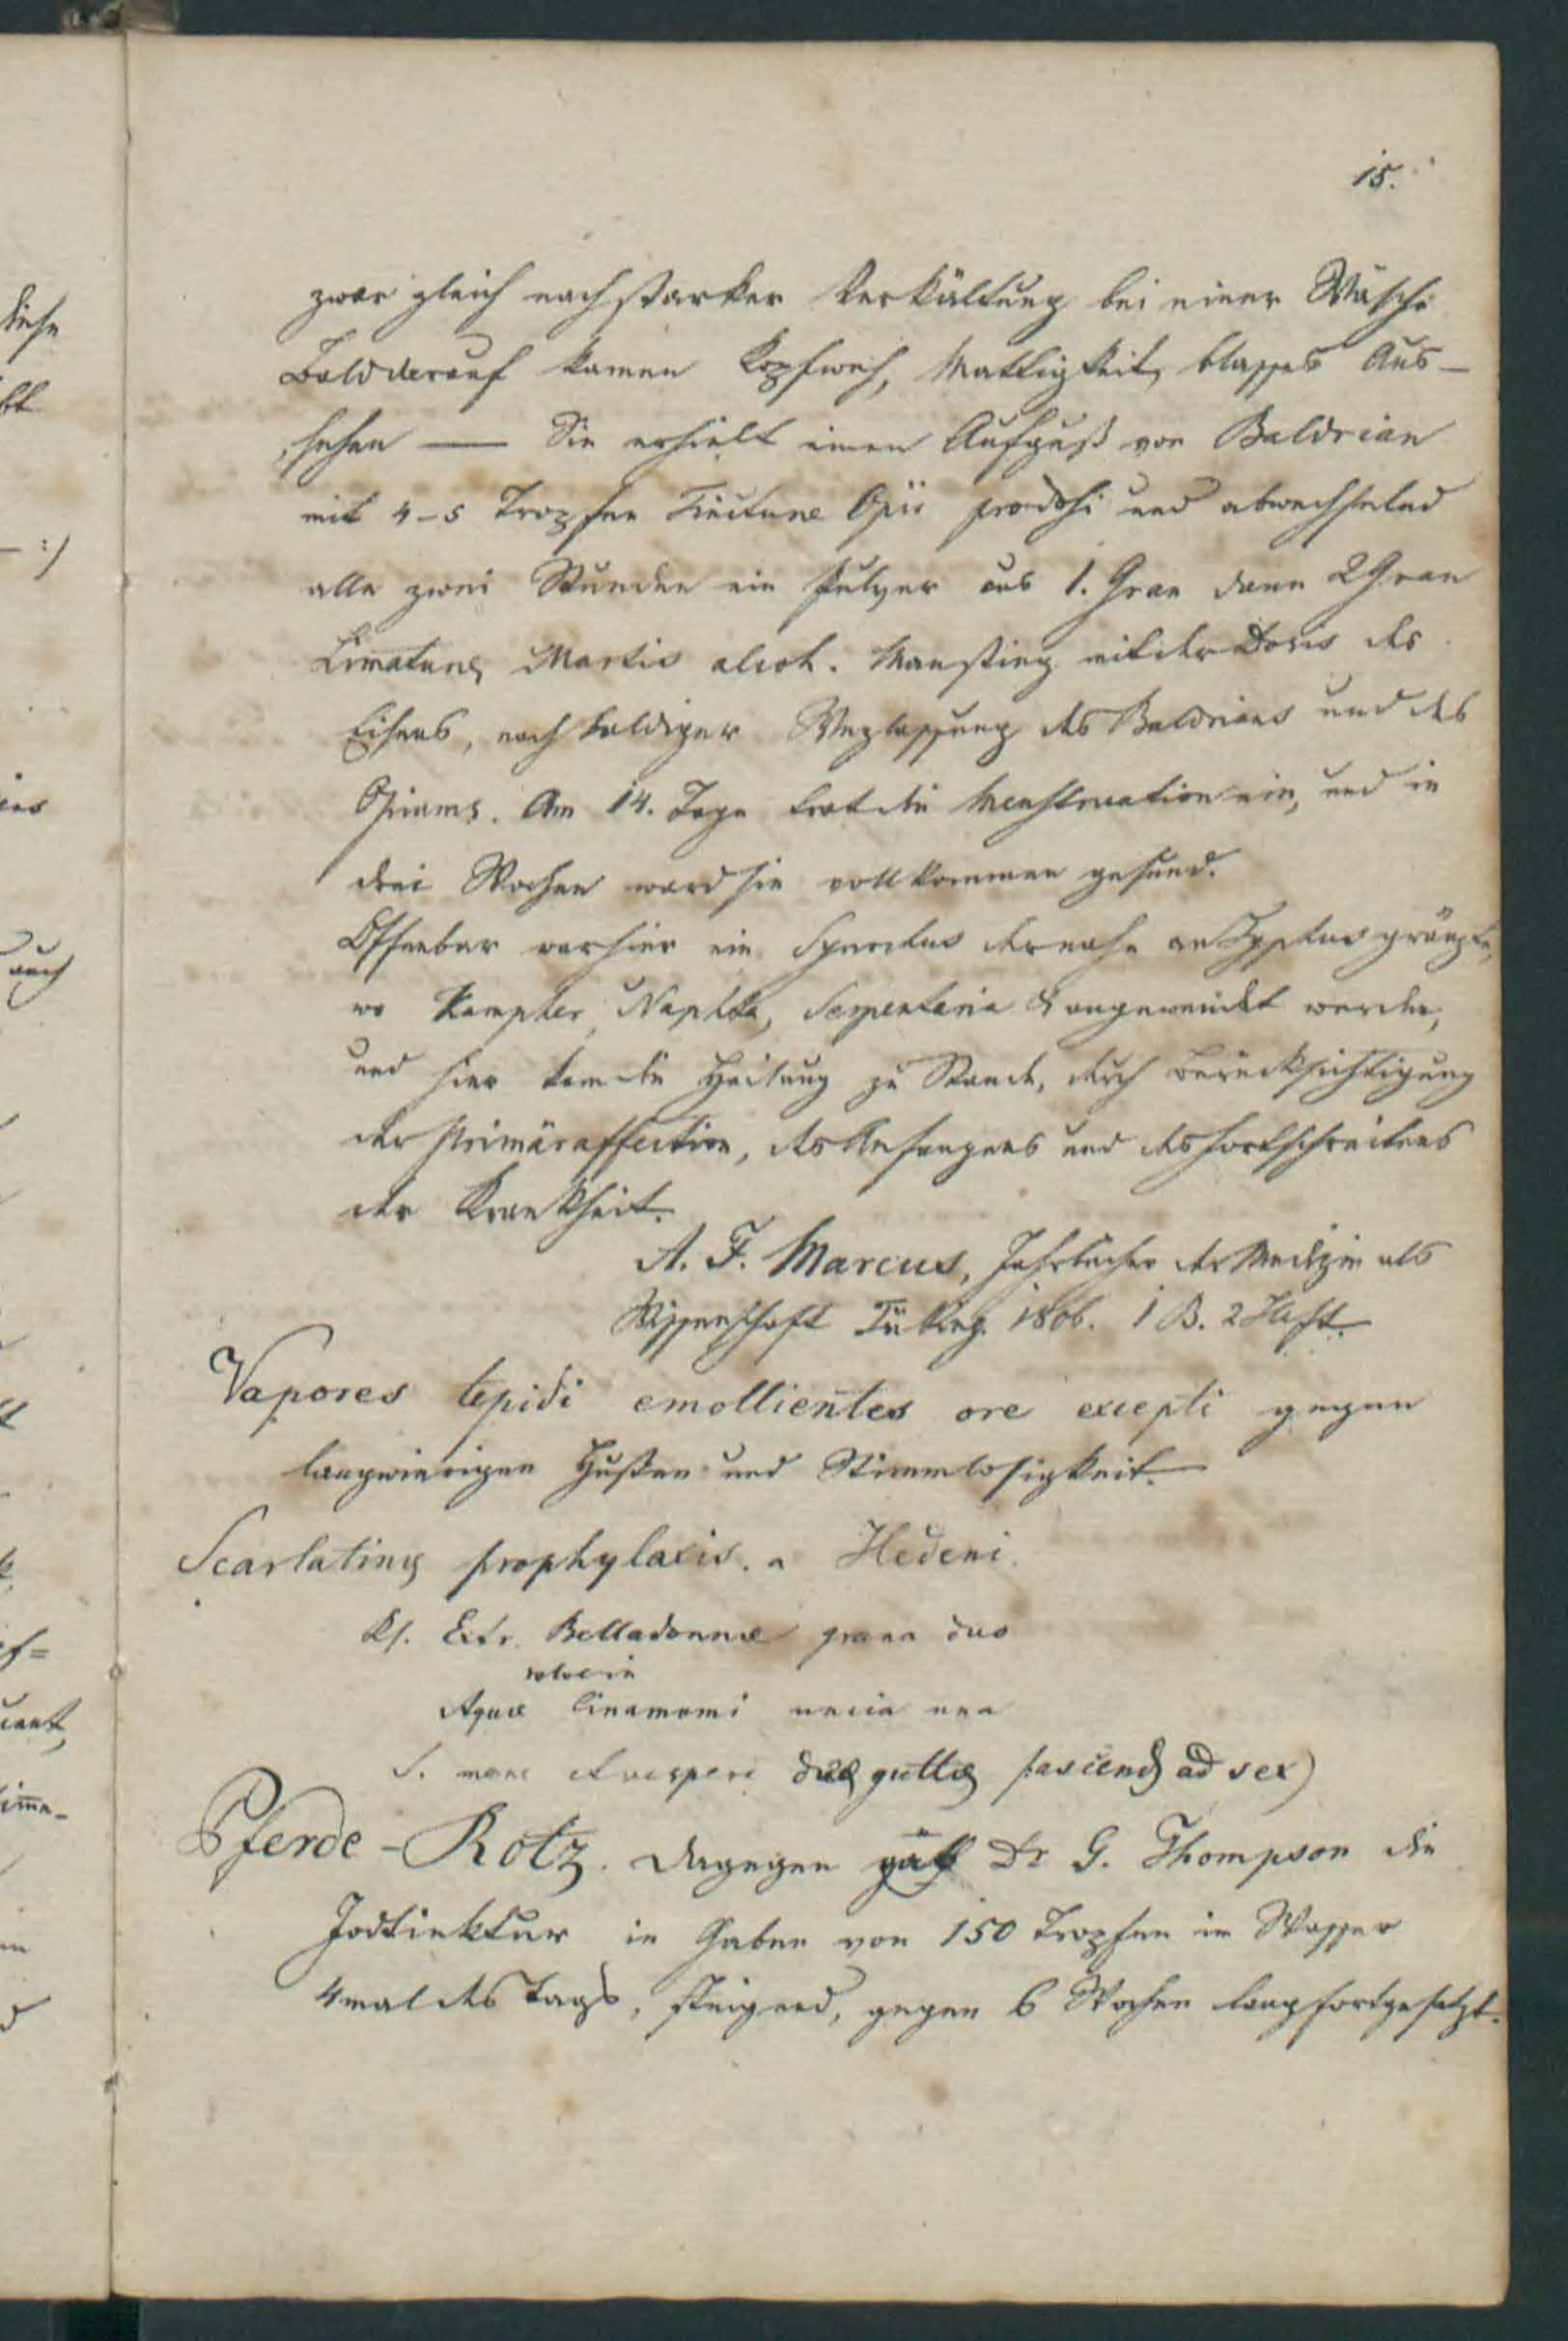 15.
zwar gleich nach starker Verkältung bei einer Wäsche
Bald darauf kamen Kopfweh, Mattigkeit, blasses Aus-
sehen — Sie erhielt einen Aufguß von Baldrian
mit 4-5 Tropfen Tincturae Opii und abwechselnd
alle zwei Stunden ein Pulver aus 1. Gran dann 2 Gran
Limaturae Martis alcoh. Man stieg mit der Dosis des
Eisens, nach baldiger Weglassung des Baldrians und des
Opiums. Am 14. Tage trat die Menstruation ein, und in
drei Wochen ward sie vollkommen gesund.
Offenbar war hier ein Synochus der nahe an Typhus gränzte,
wo Kampher, Naphta, Serpentaria & angewendet werden,
und hier kam die Heilung zu Stande, durch Berücksichtigung
der Primäraffection, des Anfangens und des Fortschreitens
der Krankheit.
A. F. Marcus, Jahrbücher der Medizin als
Wissenschaft Tübing. 1806. 1 B. 2 Heft.
Vapores tepidi emollientes ore excepti gegen
langwierigen Husten und Stimmlosigkeit.
Scarlatinae prophylaxis. a Hedeni.
Rp. Extr. Belladonnae grana duo
solve in
Aquae Cinamomi uncia una
S. mane et vesperi duae guttae (ascend ad sex)
Pferde-Rotz. Dagegen gab Dr G. Thompson die
Jodtinktur in Gaben von 150 Tropfen in Wasser
4mal des Tags, steigend, gegen 6 Wochen lang fortgesetzt.